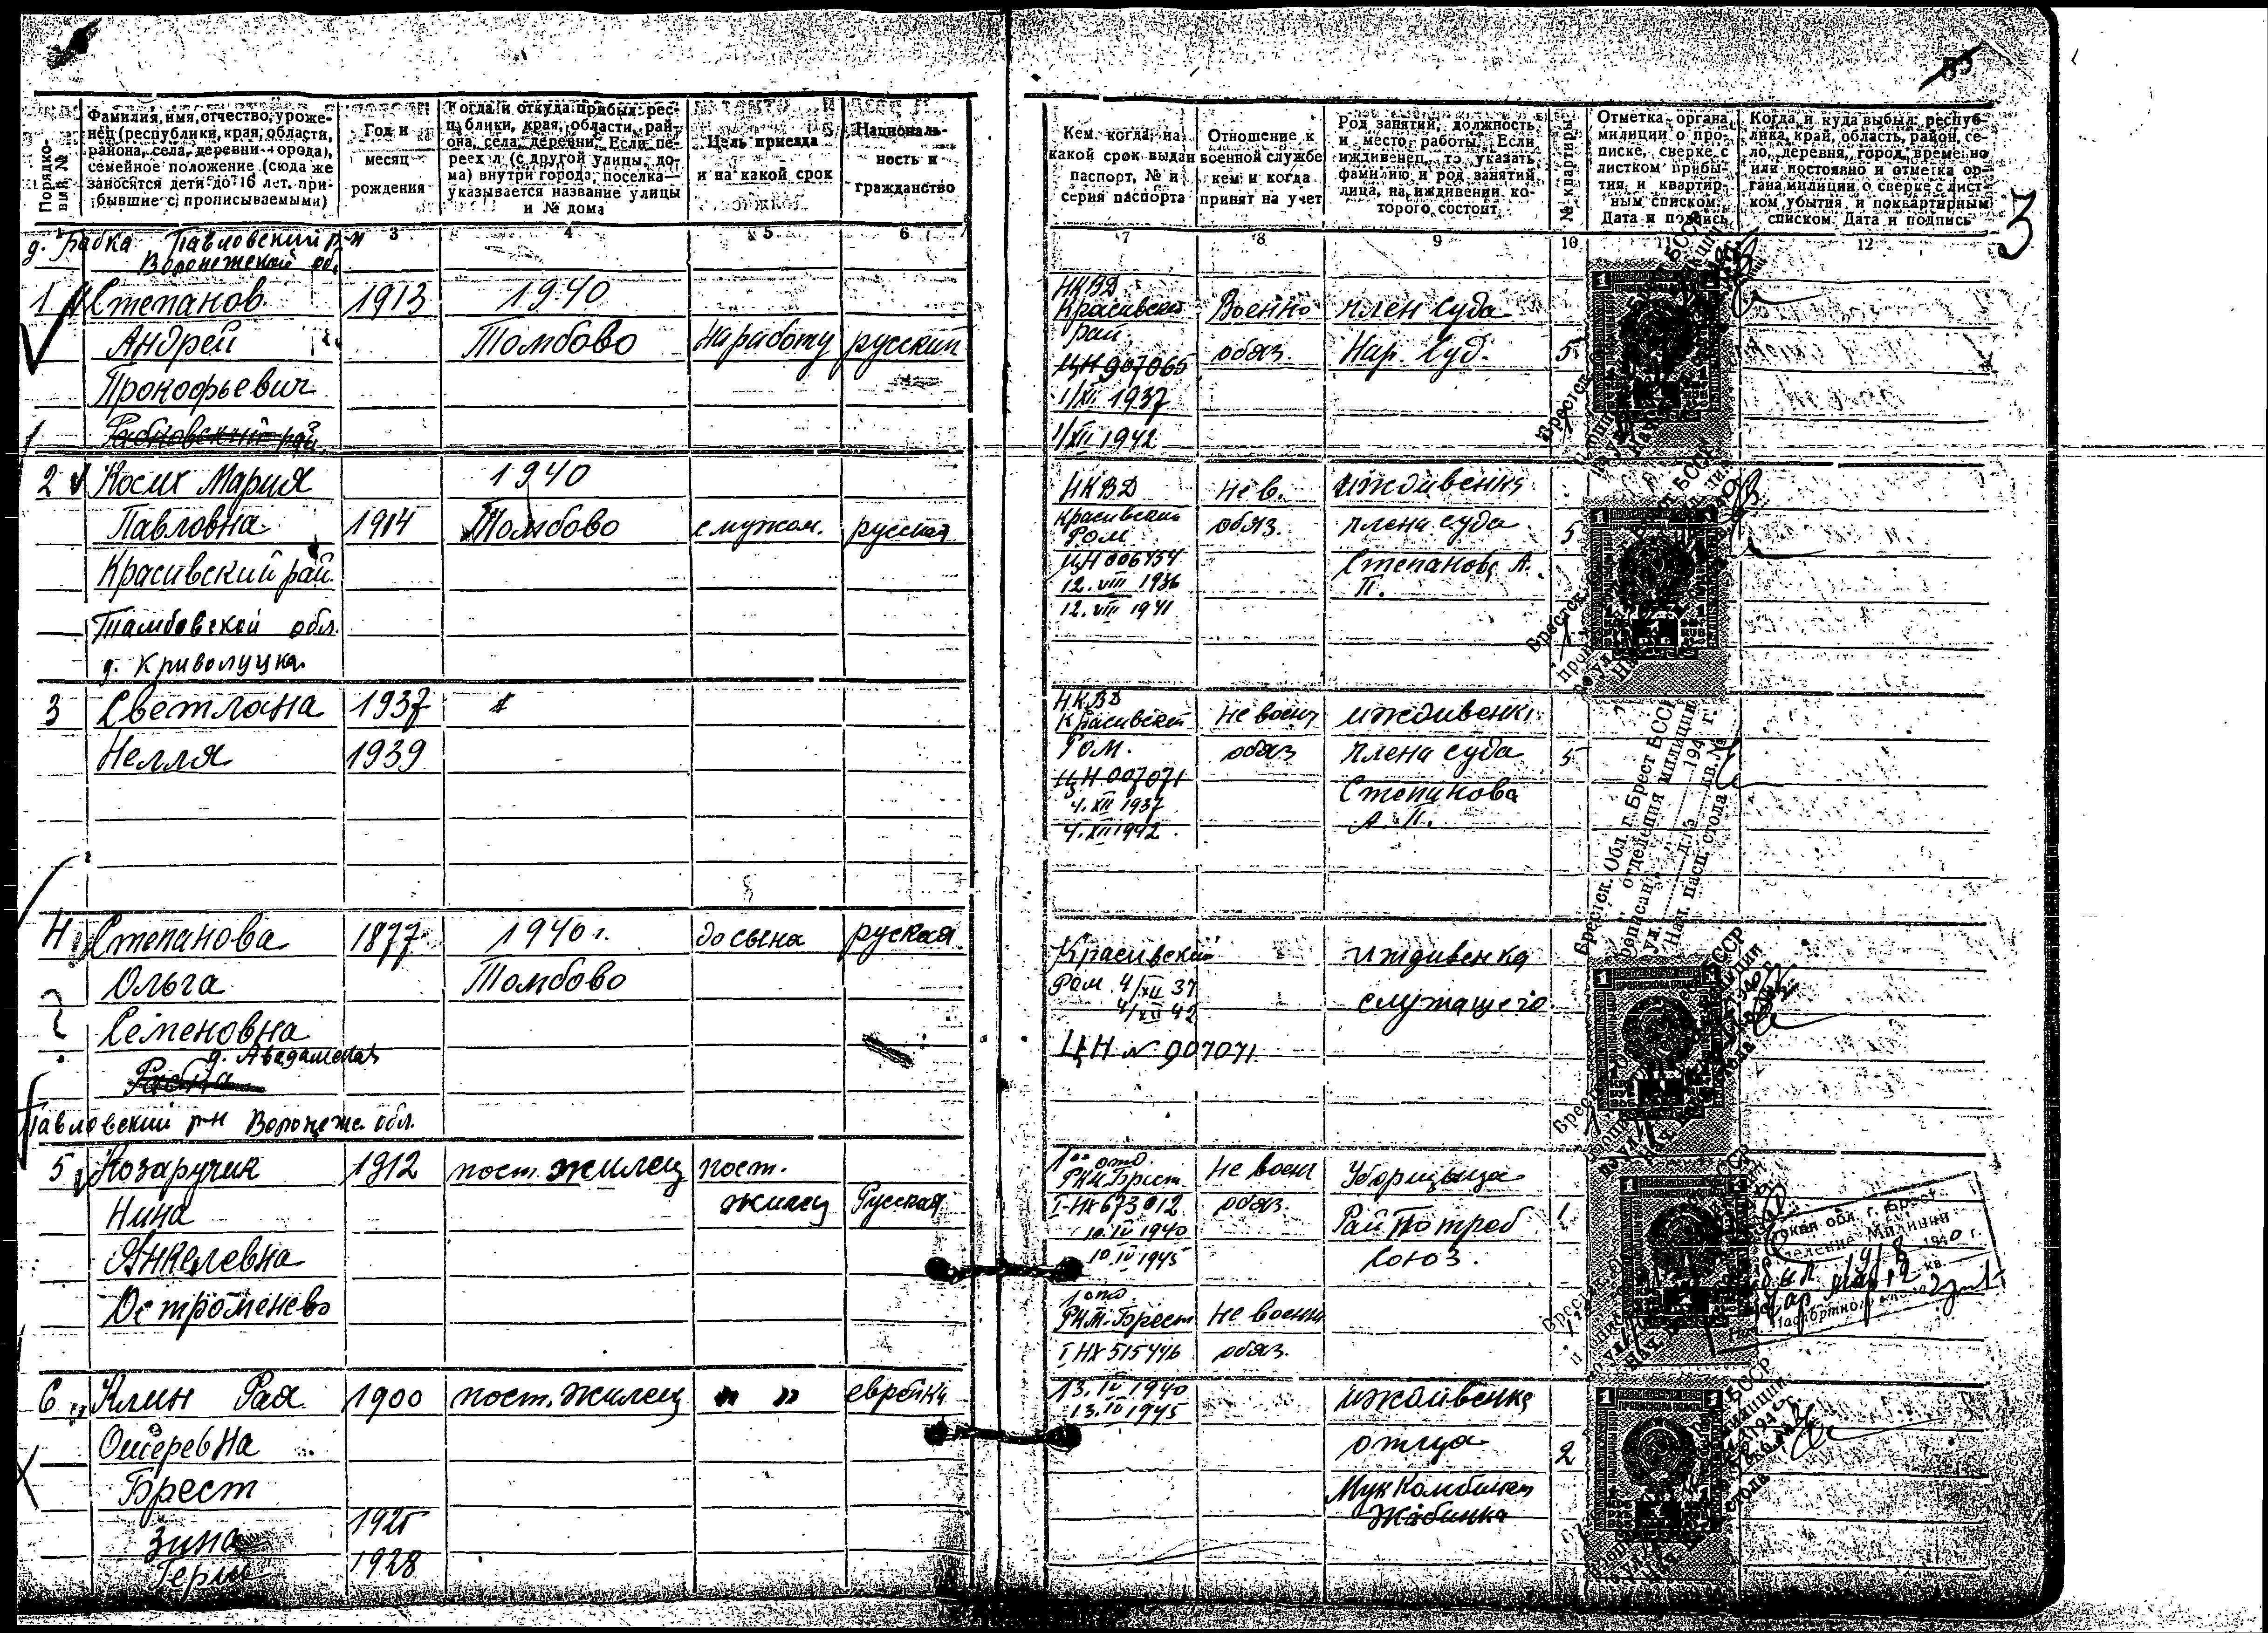 Порядко-
вый №
Фамилия, имя, отчество, уроже-
нец (республики, края, области,
района, села, деревни города),
семейное положение (сюда же
заносятся дети до 16 лет, при-
бывшие с прописываемыми)
Год и
месяц
рождения
Когда и откуда прибыл: рес-
публики, края, области, рай-
она, села, деревни. Если пе-
реехал (с другой улицы, до-
ма) внутри города, поселка—
указывается название улицы
и № дома
Цель приезда
и на какой срок
Националь-
ность и
гражданство
3 4 5 6
д. Бабка Павловский р-н
Воронежской об.
1 Степанов 1913 1940
Андрей Томбово на работу русский
Прокофьевич
2 Косых Мария 1940
Павловна 1914 Томбово с мужом. русская
Красивский рай.
Тамбовской обл.
д. Криволуцка
3 Светлана 1937
Нелля 1939
4 Степанова 1877 1940 г. до сына руская
Ольга Томбово
Семеновна
Павловский р-н Воронеже обл.
5 Козаручик 1912 пост. жилец пост.
Нина жилец Русская
Янкелевна
Остроменево
6 Клин Рая 1900 пост. жилец " " еврейка
Ошеревна
Брест
Зина 1925
1928
55
3
Кем, когда, на
какой срок выдан
паспорт, № и
серия паспорта
Отношение к
военной службе
кем и когда
принят на учет
Род занятий, должность
и место работы. Если
иждивенец, то указать
фамилию и род занятий
лица, на иждивении ко-
торого состоит
№ квартиры
Отметка органа
милиции о про-
писке, сверке с
листком прибы-
тия и квартир-
ным списком.
Дата и подпись
Когда и куда выбыл: респуб-
лика, край, область, район, се-
ло, деревня, город, временно
или постоянно и отметка ор-
гана милиции о сверке с лист-
ком убытия и поквартирным
списком. Дата и подпись
7 8 9 10 11 12
НКВД
Красивский Военно член суда
рай обяз. Нар. Суд. 5
ЦН 907065
1/XII 1937
1/XII 1942
НКВД не в. иждивенка
Красивский обяз. члена суда 5
Ром
ЦН 006454 Степанова А.
12. VIII 1936 П.
12. VIII 1941
НКВД
Красивский не воен иждивенка
Ром. обяз члена суда 5
ЦН 007071
4. XII 1937 Степанова
4. XII 1942. А. П.
Брестск. Обл. г. Брест БССР
отделения милиции
Нач. пасп. стола
Красивский иждивенка
Ром. 4/XII 37 служащего
4/XII 42
ЦН № 907071.
1ое отд
РКМ Брест не воен Уборщыца
I-НХ 673012 обяз. Рай Потреб 1
10. IV 1940
10 IV 1945 Союз.
1 отд.
РКМ-Брест не военн
I НХ 515446 обяз.
13. IV 1940 иждивенка
13. IV 1945
отца 2
Мук Комбинат
Жабинка